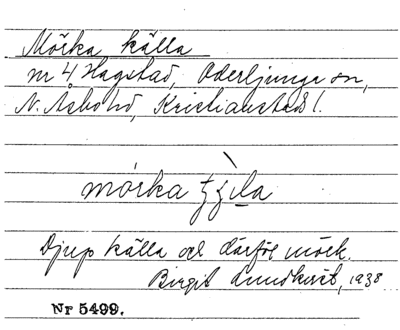 Mörka källa
nr 4 Hagstad, Oderljunga sn,
N. Åsbo hd, Kristianstads l.
mörka
Djup källa och därför mörk.
Birgit Lundkvist, 1938
Nr 5499.